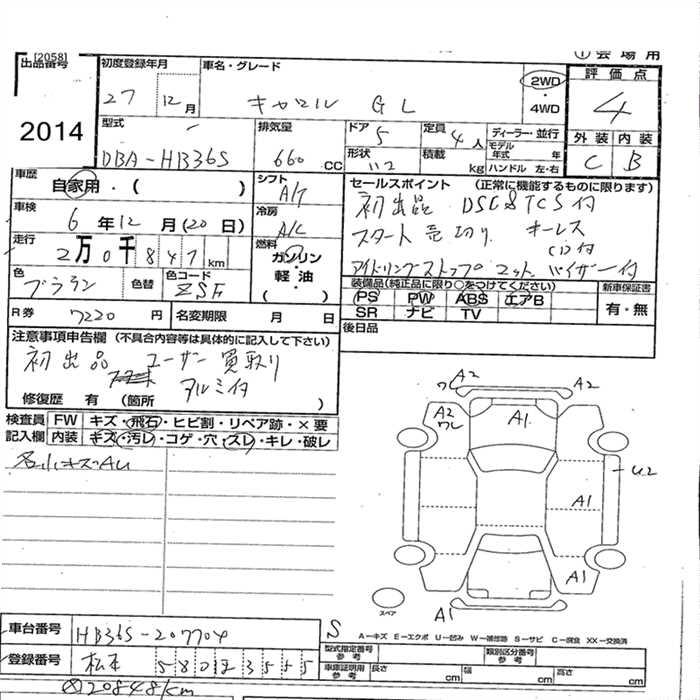 [2058]
① 会場用
出品番号
2014
初度登録年月
27 12月
車名・グレード
キャロル GL
2WD
・
4WD
評価点
4
外装 内装
C B
型式
DBA-HB36S
排気量
660 CC
ドア 5
形状
定員 4人
積載 kg
ディーラー・並行
モデル年式 年
ハンドル 左・右
車歴
自家用・( )
シフト
A/T
車検
6年12月(20日)
冷房
A/C
走行
2万0千847km
燃料
ガソリン
軽・油
( )
色
ブラウン
色替
色コード
ZSF
R券 7220円
名変期限 月 日
セールスポイント (正常に機能するものに限ります)
初出品 DSC&TCS付
スタート売切り キーレス
CD付
アイドリングストップ マット バイザー付
装備品(純正品に限り○をつけてください)
PS PW ABS エアB
SR ナビ TV
新車保証書
有・無
後日品
注意事項申告欄 (不具合内容等は具体的に記入して下さい)
初出品 ユーザー買取り
アルミ付
修復歴 有 (箇所 )
検査員記入欄
FW キズ・飛石・ヒビ割・リペア跡・×要
内装 キズ・汚レ・コゲ・穴・スレ・キレ・破レ
各小キズAU
A2
ワレ
A2
A2
ワレ
A1
U2
A1
A1
A1
スペア
S
A-キズ E-エクボ U-凹み W-補修跡 S-サビ C-腐食 XX-交換済
車台番号 HB36S-207704
登録番号 松本 580 ま 3555
型式指定番号
参考
類別区分番号
参考
車庫証明用
参考
長さ cm
幅 cm
高さ cm
※20848km